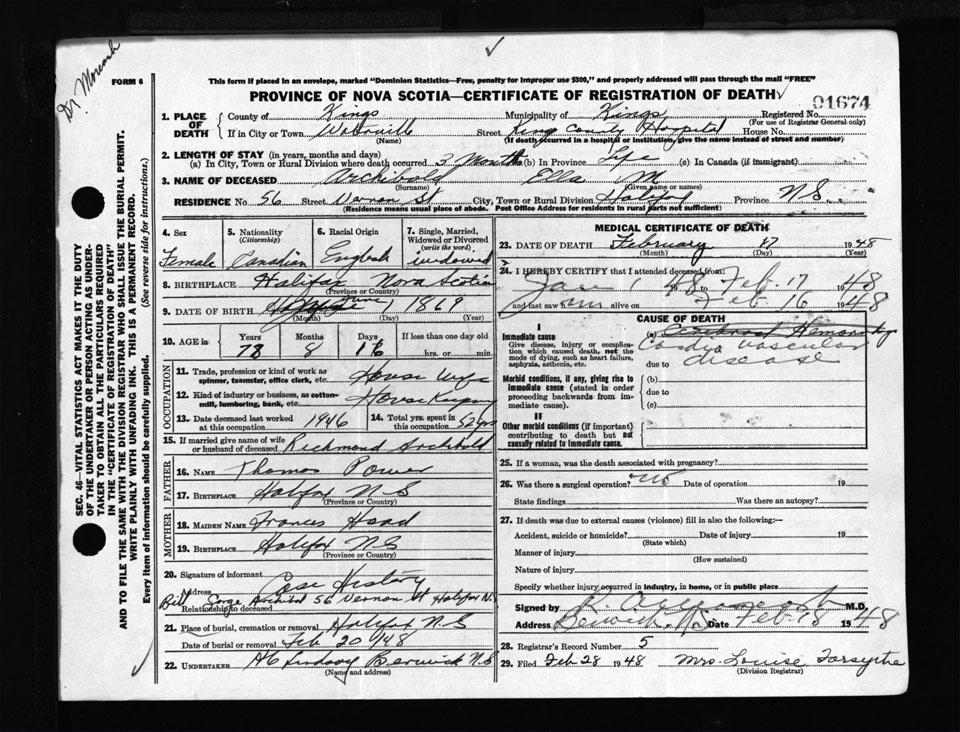 Dr. Morash
FORM 6
This form if placed in an envelope, marked "Dominion Statistics—Free, penalty for improper use $300," and properly addressed will pass through the mail "FREE"
PROVINCE OF NOVA SCOTIA—CERTIFICATE OF REGISTRATION OF DEATH
01674
1. PLACE OF DEATH { County of Kings Municipality of Kings Registered No.
(For use of Registrar General only)
If in City or Town Wolfville Street Kings County Hospital House No.
(Name) (If death occurred in a hospital or institution, give the name instead of street and number)
2. LENGTH OF STAY (in years, months and days)
(a) In City, Town or Rural Division where death occurred 2 Months (b) In Province Life (c) In Canada (if immigrant)
3. NAME OF DECEASED Archibold Ella M
(Surname) (Given name or names)
RESIDENCE No 56 Street Vernon St City, Town or Rural Division Halifax Province N.S
(Residence means usual place of abode. Post Office Address for residents in rural parts not sufficient)
4. Sex 5. Nationality (Citizenship) 6. Racial Origin 7. Single, Married, Widowed or Divorced (write the word)
Female Canadian English widowed
8. BIRTHPLACE Halifax Nova Scotia
(Province or Country)
9. DATE OF BIRTH June 1 1869
(Month) (Day) (Year)
10. AGE in { Years Months Days If less than one day old
78 8 16 hrs. or min.
OCCUPATION
11. Trade, profession or kind of work as spinner, teamster, office clerk, etc. House Wife
12. Kind of industry or business, as cotton-mill, lumbering, bank, etc. House Keeping
13. Date deceased last worked at this occupation 1946 14. Total yrs. spent in this occupation 52 yrs
15. If married give name of wife or husband of deceased Richmond Archibold
FATHER
16. NAME Thomas Power
17. BIRTHPLACE Halifax N.S
(Province or Country)
MOTHER
18. MAIDEN NAME Frances Head
19. BIRTHPLACE Halifax N.S
(Province or Country)
20. Signature of informant Case History
Address 56 Vernon St Halifax N.S
Relationship to deceased
21. Place of burial, cremation or removal Halifax N.S
Date of burial or removal Feb 20/48
22. UNDERTAKER Lindsay Berwick N.S
(Name and address)
MEDICAL CERTIFICATE OF DEATH
23. DATE OF DEATH February 17 1948
(Month) (Day) (Year)
24. I HEREBY CERTIFY that I attended deceased from:
Jan 1 1948 to Feb 17 1948
and last saw h alive on Feb 16 1948
CAUSE OF DEATH
I
Immediate cause
Give disease, injury or complication which caused death, not the mode of dying, such as heart failure, asphyxia, asthenia, etc.
(a) Cerebral Hemorrhage
Cardio vascular
due to disease
Morbid conditions, if any, giving rise to immediate cause (stated in order proceeding backwards from immediate cause).
(b)
due to
(c)
II
Other morbid conditions (if important) contributing to death but not causally related to immediate cause.
25. If a woman, was the death associated with pregnancy?
26. Was there a surgical operation? no Date of operation 19
State findings Was there an autopsy?
27. If death was due to external causes (violence) fill in also the following:—
Accident, suicide or homicide? Date of injury 19
(State which)
Manner of injury
(How sustained)
Nature of injury
Specify whether injury occurred in industry, in home, or in public place
Signed by M.D.
Address Berwick, N.S. Date Feb 18 1948
28. Registrar's Record Number 5
29. Filed Feb 28 1948 Mrs. Louise Forsythe
(Division Registrar)
SEC. 46—VITAL STATISTICS ACT MAKES IT THE DUTY
OF THE UNDERTAKER OR PERSON ACTING AS UNDER-
TAKER TO OBTAIN ALL THE PARTICULARS REQUIRED
IN THE "CERTIFICATE OF REGISTRATION OF DEATH"
AND TO FILE THE SAME WITH THE DIVISION REGISTRAR WHO SHALL ISSUE THE BURIAL PERMIT.
WRITE PLAINLY WITH UNFADING INK. THIS IS A PERMANENT RECORD.
Every item of information should be carefully supplied. (See reverse side for instructions.)